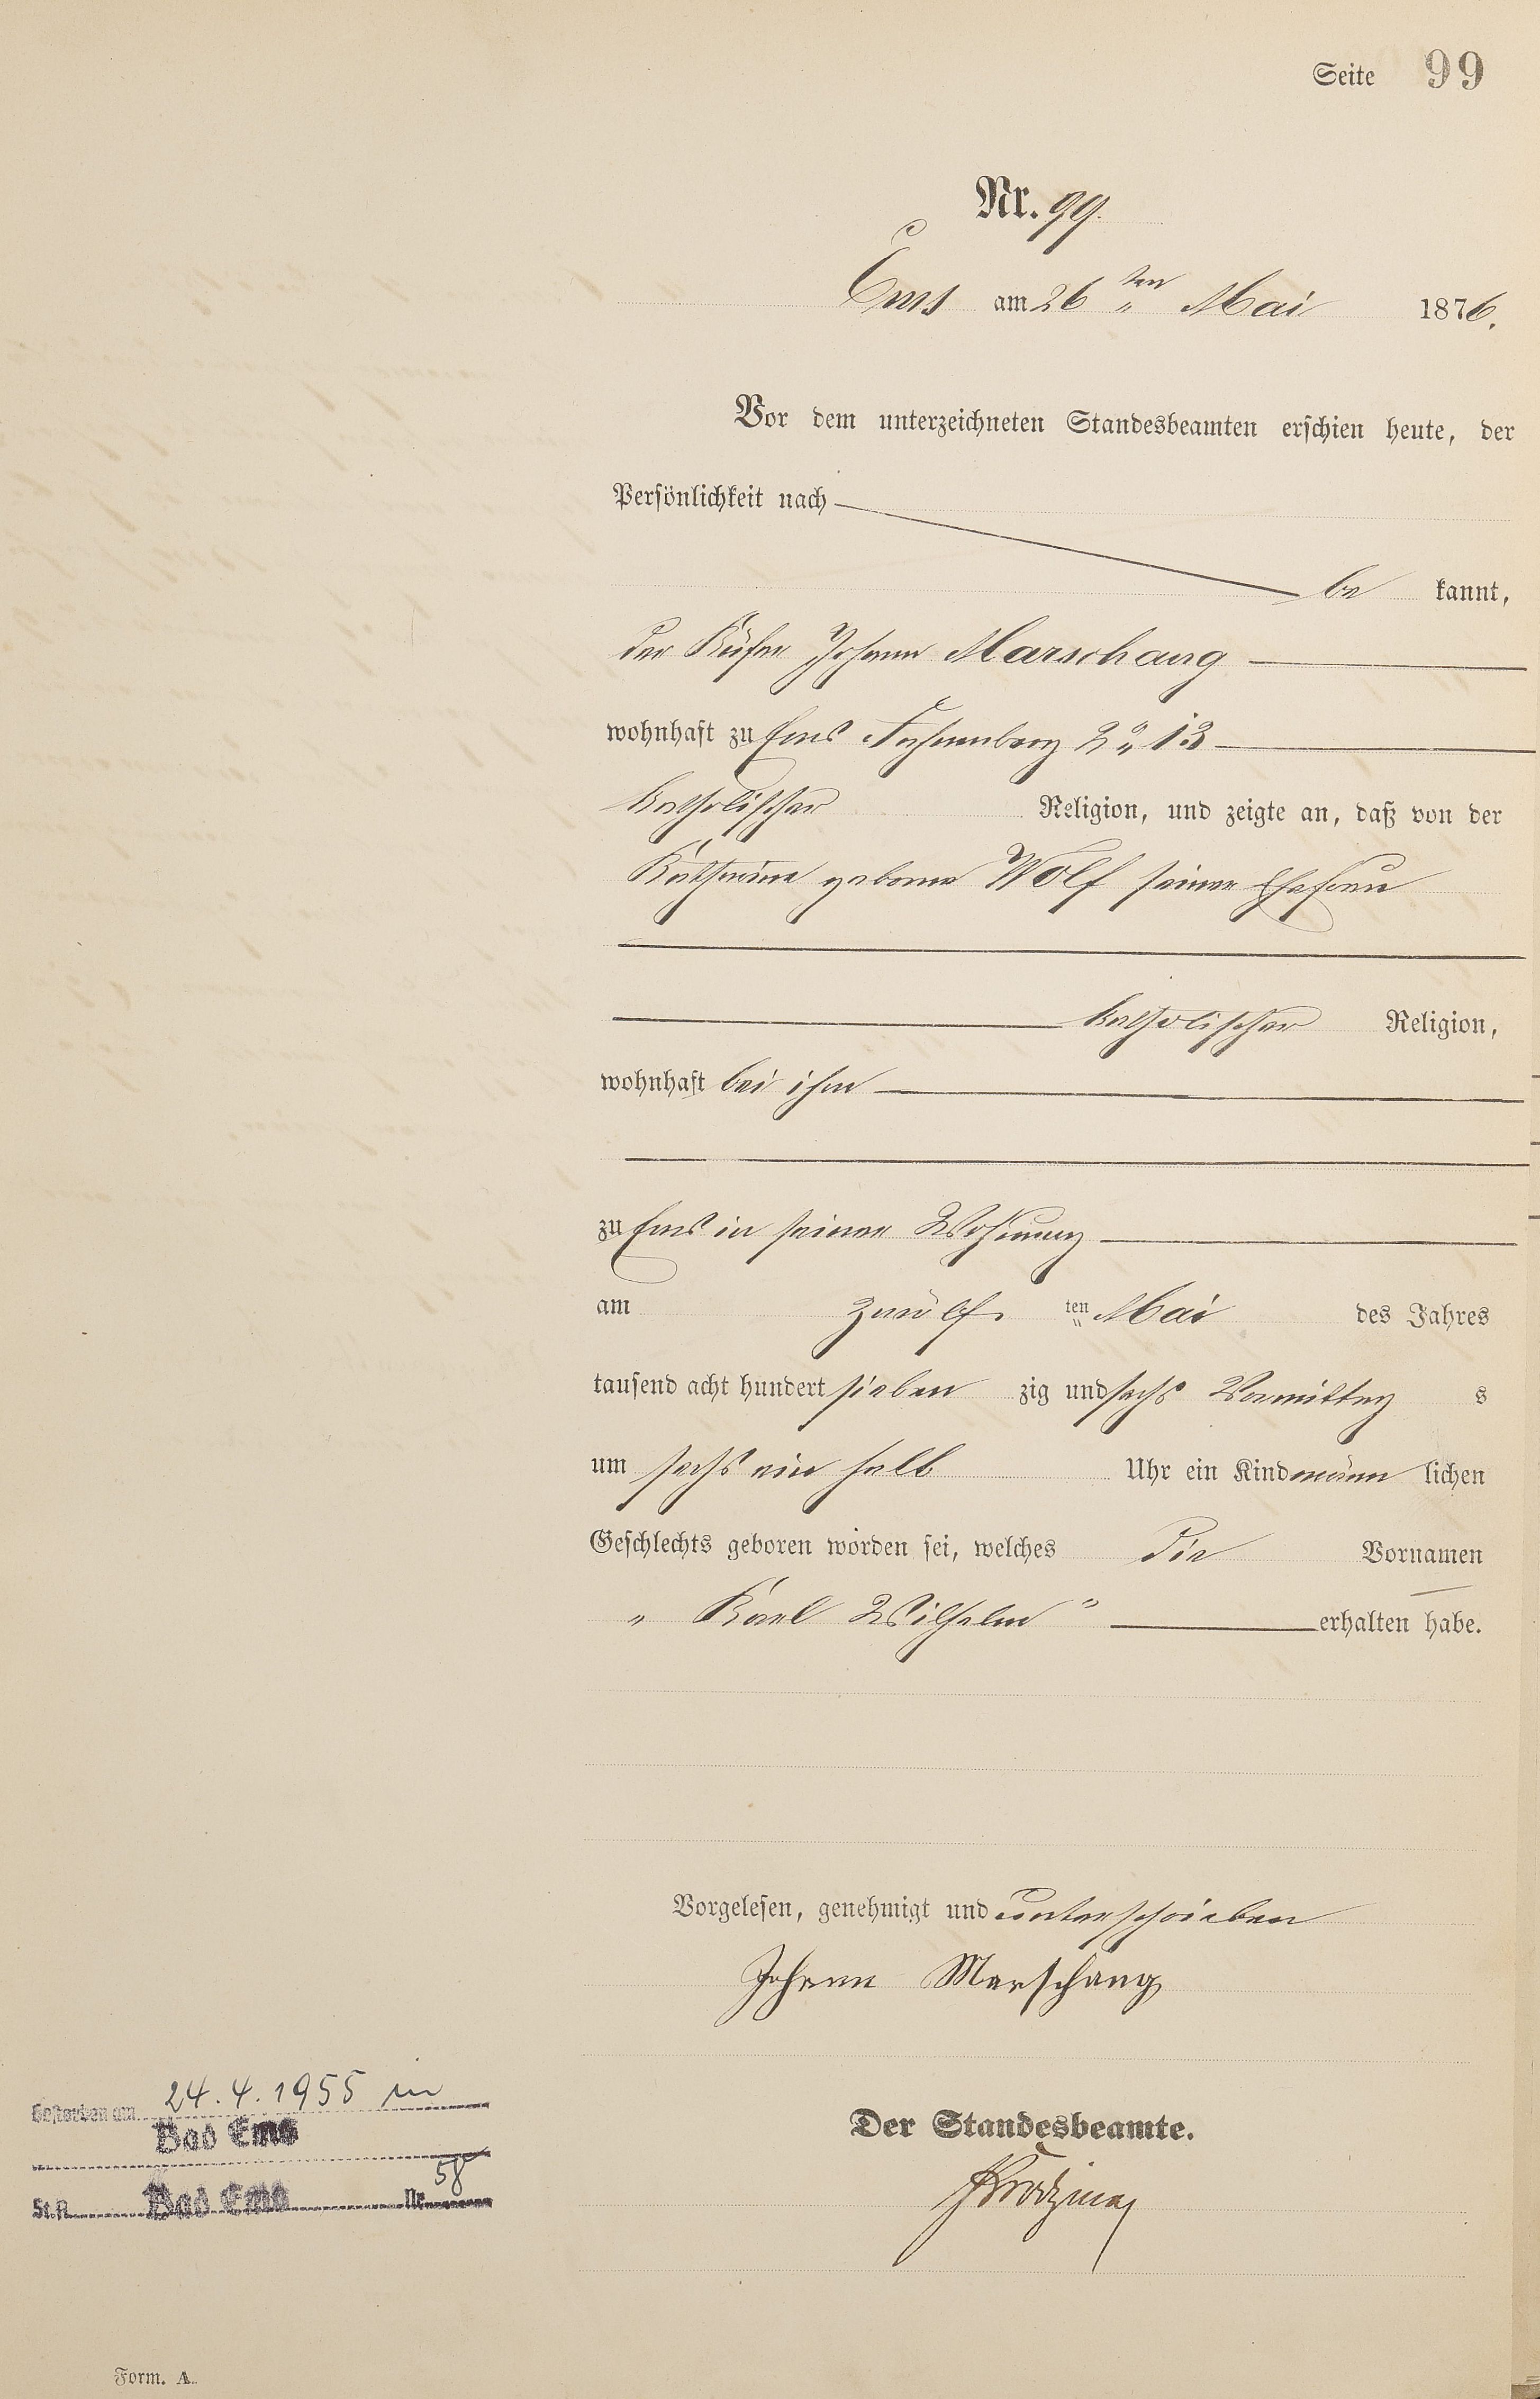 Seite 99
Nr. 99.
Ems am 26ten „ Mai 1876.
Vor dem unterzeichneten Standesbeamten erschien heute, der
Persönlichkeit nach
be kannt,
der Küfer Johann Marschang
wohnhaft zu Ems No 13
katholischer Religion, und zeigte an, daß von der
Katharina geborne Wolf seiner Ehefrau
katholischer Religion,
wohnhaft bei ihm
zu Ems in seiner Wohnung
am zwölf ten „ Mai des Jahres
tausend acht hundert sieben zig und sechs Vormittag s
um sechs ein halb Uhr ein Kind männ lichen
Geschlechts geboren worden sei, welches die Vornamen
„ Karl Wilhelm “ erhalten habe.
Vorgelesen, genehmigt und unterschrieben
Johann Marschang
Der Standesbeamte.
Gestorben am 24.4.1955 in
Bad Ems
St.A. Bad Ems Nr. 58
Form. A.